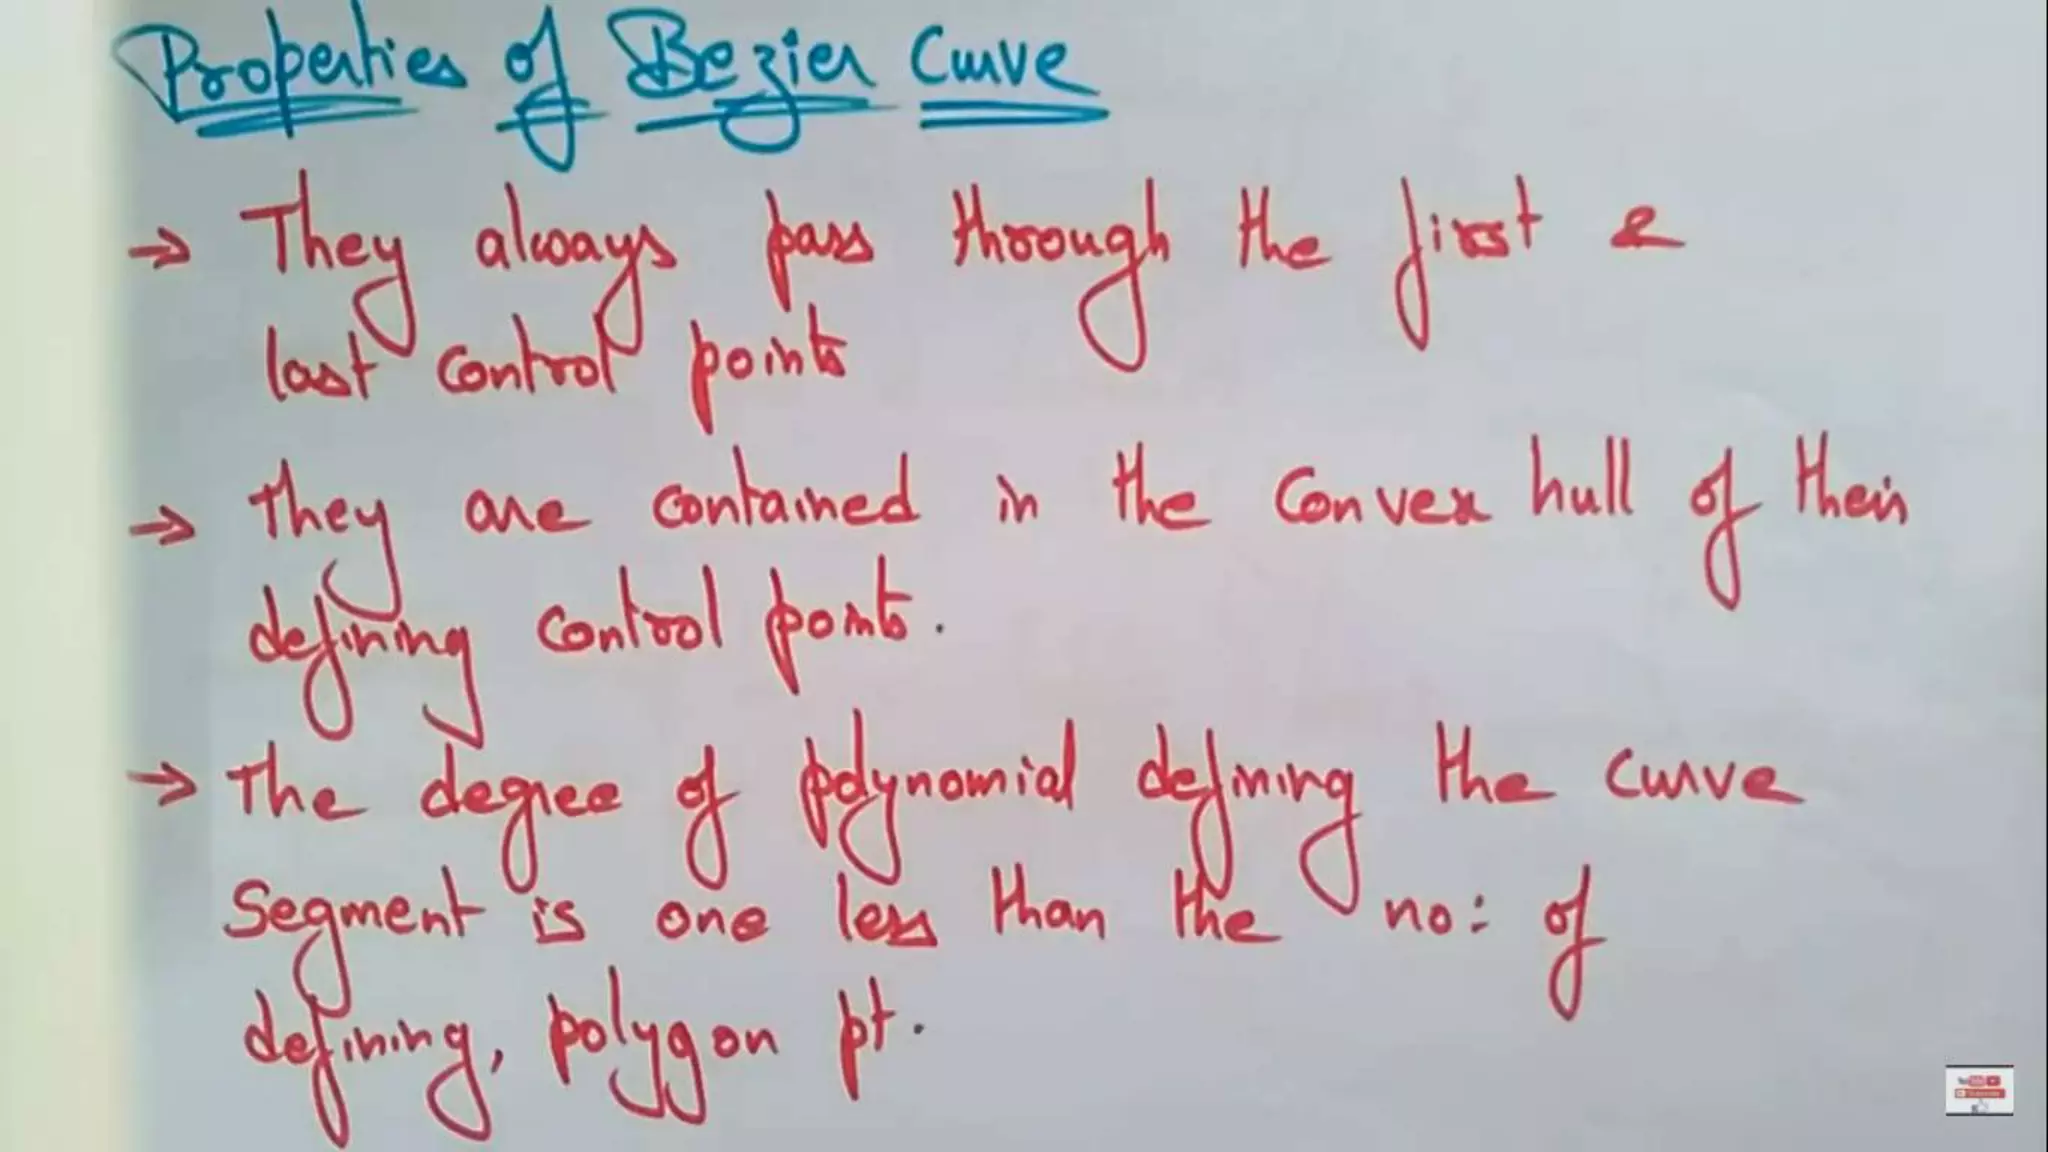 Properties of Bezier Curve
→ They always pass through the first &
last control points
→ They are contained in the convex hull of their
defining control points.
→ The degree of polynomial defining the curve
Segment is one less than the no: of
defining, polygon pt.